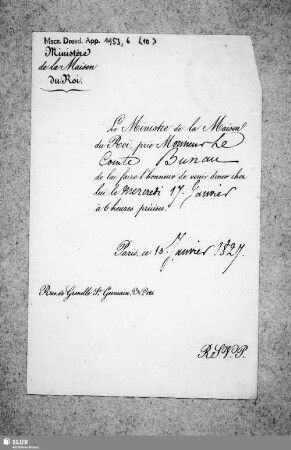 Mscr. Dresd. App. 1953, 6 (10)
Ministère
de la Maison
du Roi.
Le Ministre de la Maison
du Roi, prie Monsieur Le
Comte Bunau
de lui faire l'honneur de venir diner chez
lui le mercredi 17 Janvier
à 6 heures précises.
Paris, ce 10 Janvier 1827.
Rue de Grenelle St. Germain, No.
R.S.V.P.
SLUB